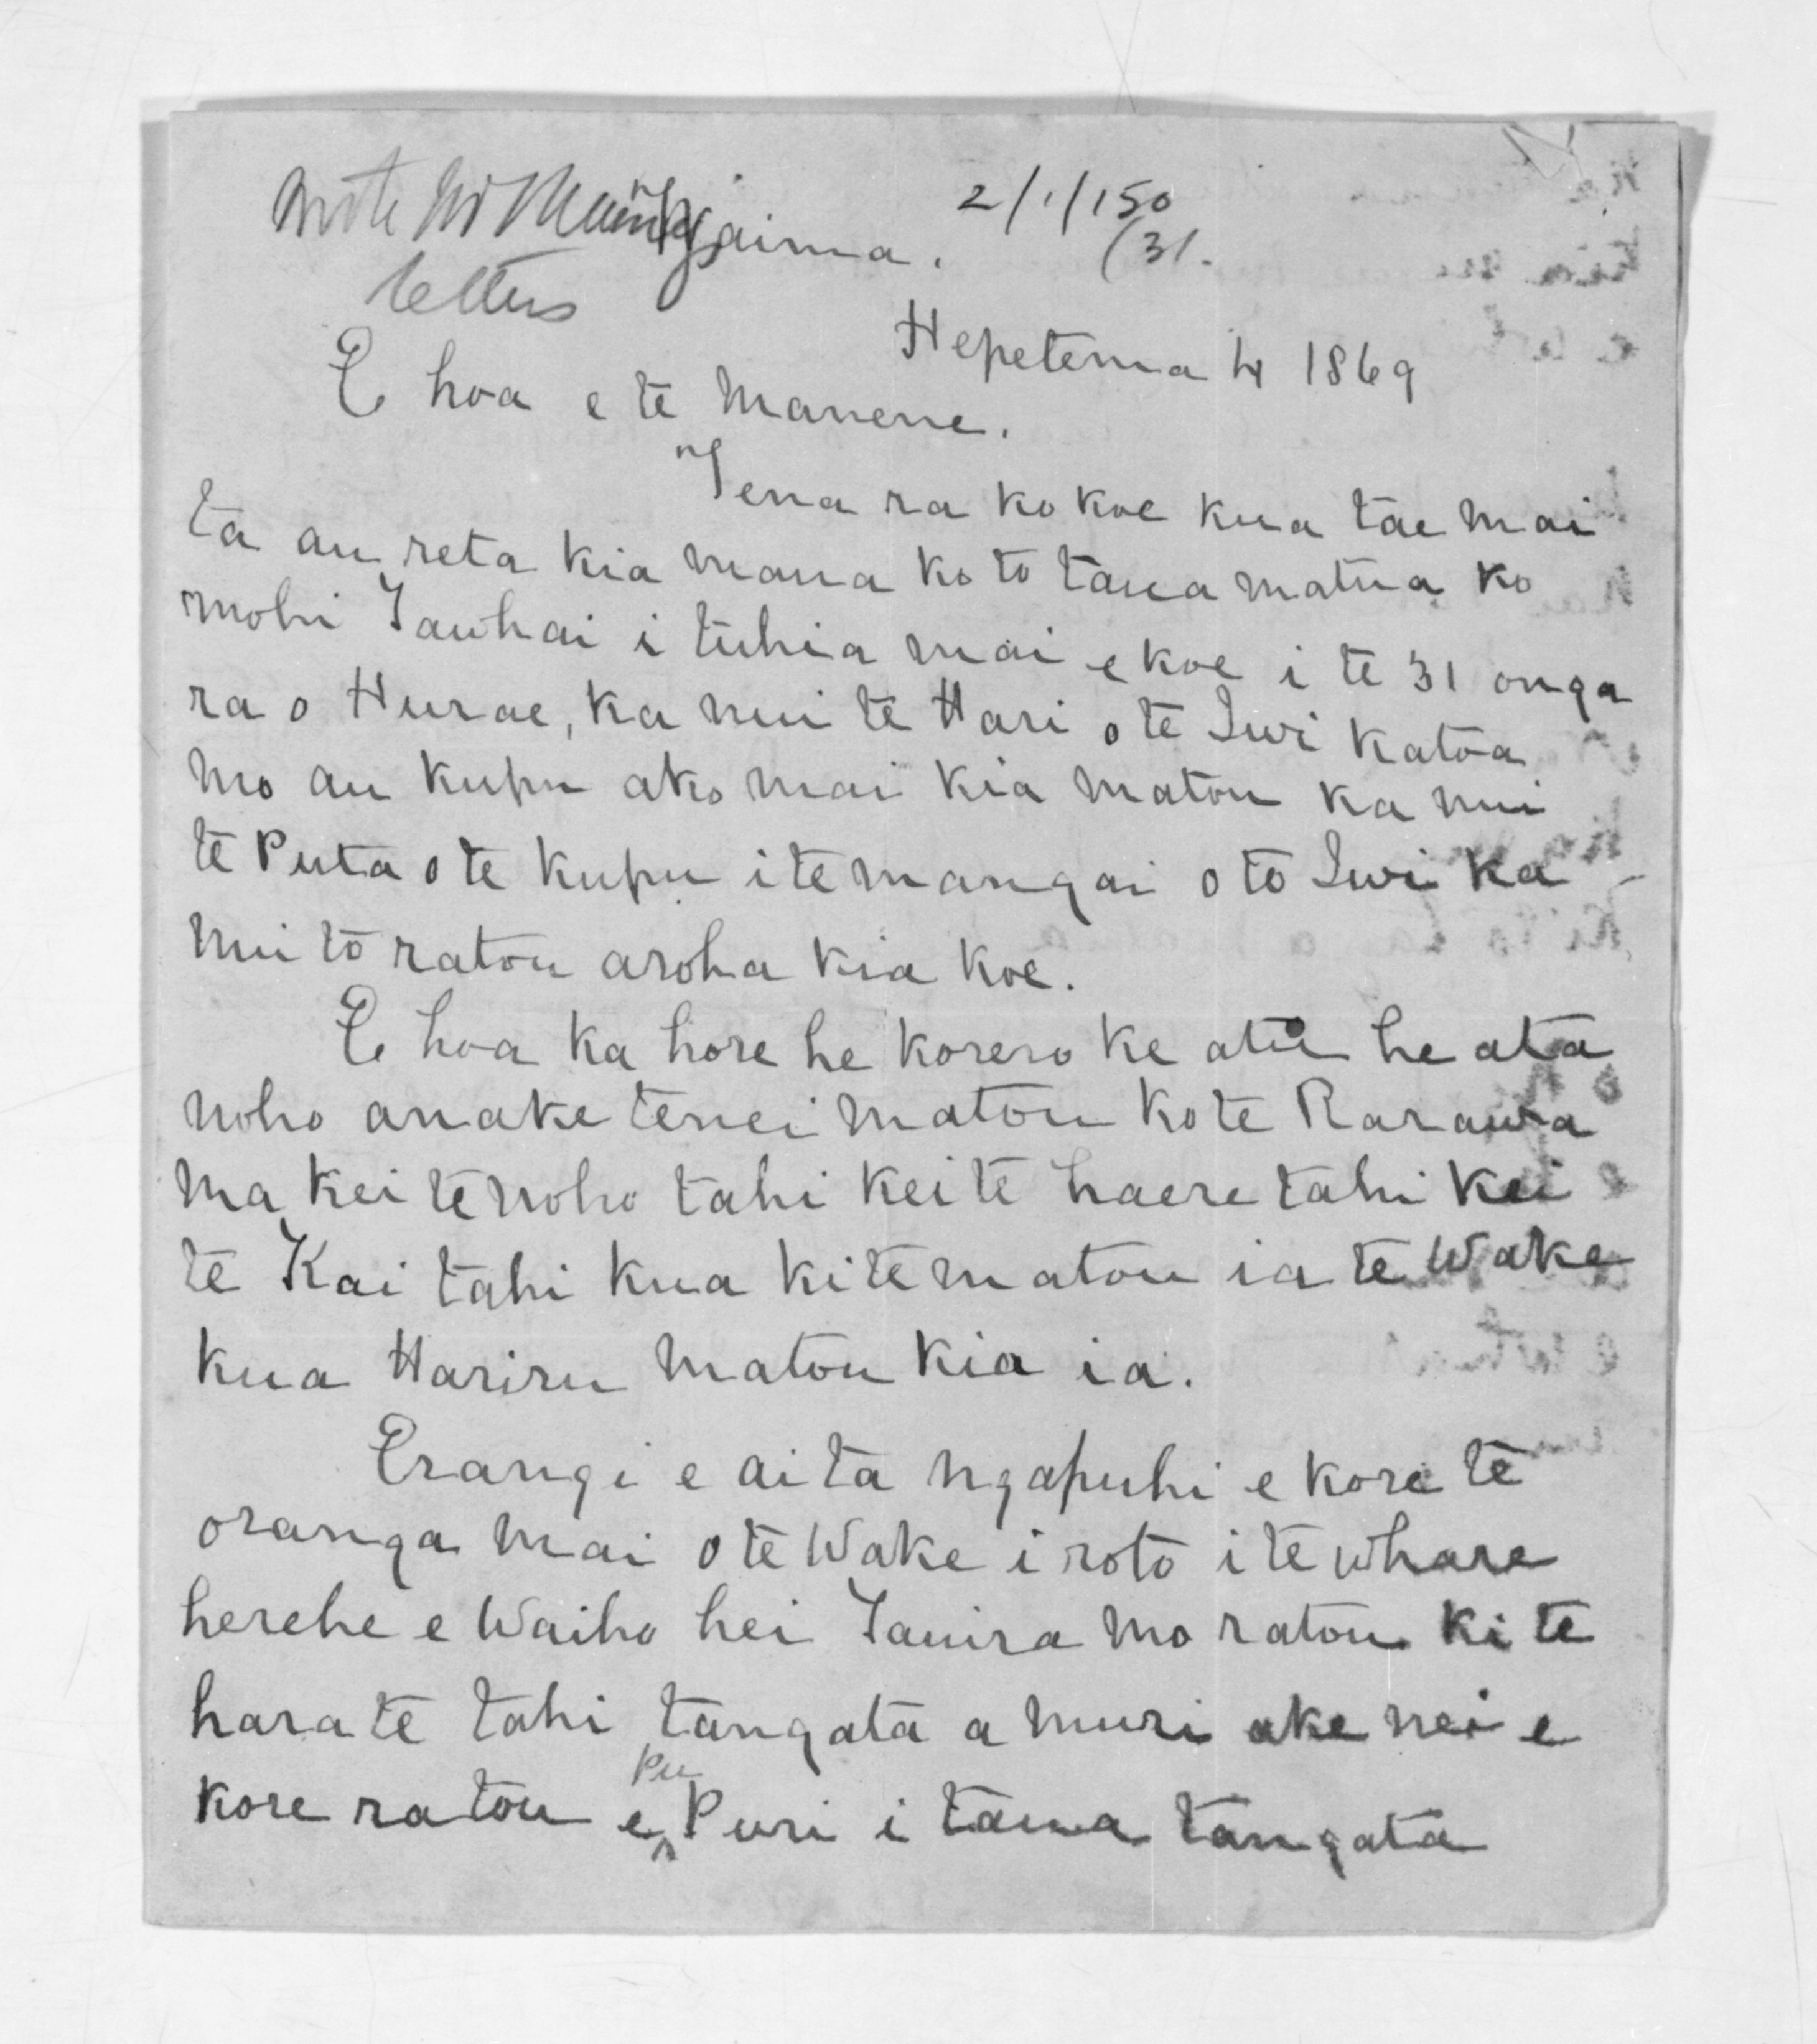 2/1/150
(31.
letters
Hepetema 4 1869
E hoa e te Manene.
Tena ra ko koe kua tae mai
ta au reta kia maua ko to taua matua ko
mohi Tawhai i tuhia mai e koe i te 31 onga
ra o Hurae, ka nui te Hari o te Iwi katoa
mo au kupu ako mai kia matou ka nui
te Puta o te kupu i te mangai o to Iwi ka
nui to ratou aroha kia koe.
E hoa ka hore he korero ke atu he ata
noho anake tenei matou ko te Rarawa
ma kei te noho tahi kei te haere tahi kei
te Kai tahi kua kite matou ia te Wake
kua Hariru matou kia ia.
Erangi e ai ta ngapuhi e kore te
oranga mai o te Wake i roto i te whare
herehe e Waiho hei Tauira mo ratou ki te
hara te tahi tangata a muri ake nei e
kore ratou e Pu Puri i taua tangata